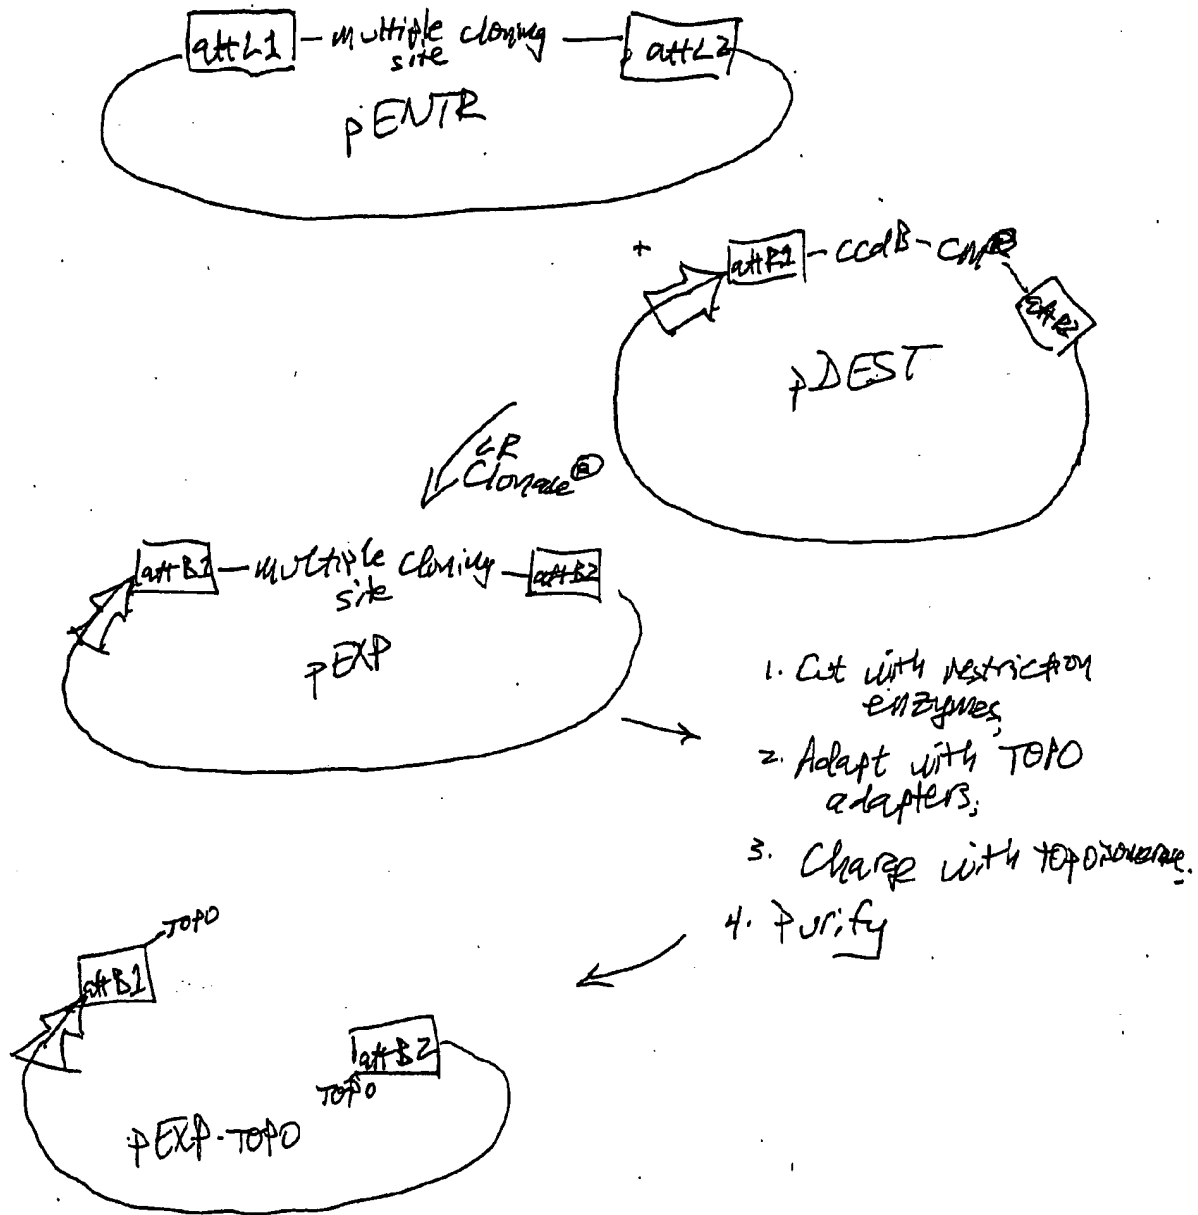 attL1 – multiple cloning — attL2
site
pENTR
+
attR1 – ccdB – CmR
attR2
pDEST
LR
Clonase®
attB1 — multiple cloning — attB2
site
pEXP
1. Cut with restriction
enzymes;
2. Adapt with TOPO
adapters;
3. Charge with topoisomerase.
4. Purify
TOPO
attB1
attB2
TOPO
pEXP-TOPO